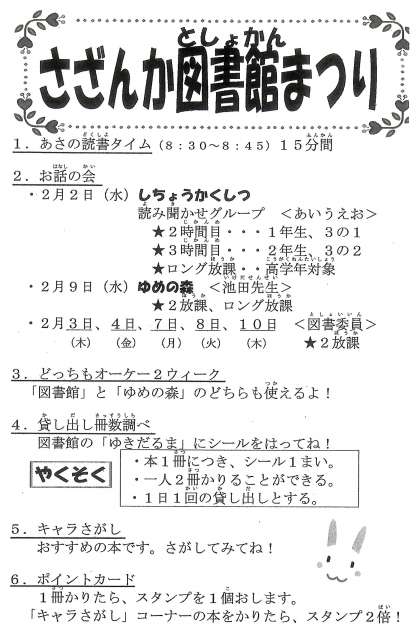 さざんか図書館まつり
としょかん
1．あさの読書タイム（8：30～8：45）15分間
2．お話の会
・2月2日（水）しちょうかくしつ
読み聞かせグループ　＜あいうえお＞
★2時間目・・・1年生、3の1
★3時間目・・・2年生、3の2
★ロング放課・・高学年対象
・2月9日（水）ゆめの森　＜池田先生＞
★2放課、ロング放課
・2月3日、4日、7日、8日、10日　＜図書委員＞
（木）　（金）　（月）　（火）　（木）　★2放課
3．どっちもオーケー2ウィーク
「図書館」と「ゆめの森」のどちらも使えるよ！
4．貸し出し冊数調べ
図書館の「ゆきだるま」にシールをはってね！
やくそく
・本1冊につき、シール1まい。
・一人2冊かりることができる。
・1日1回の貸し出しとする。
5．キャラさがし
おすすめの本です。さがしてみてね！
6．ポイントカード
1冊かりたら、スタンプを1個おします。
「キャラさがし」コーナーの本をかりたら、スタンプ2倍！